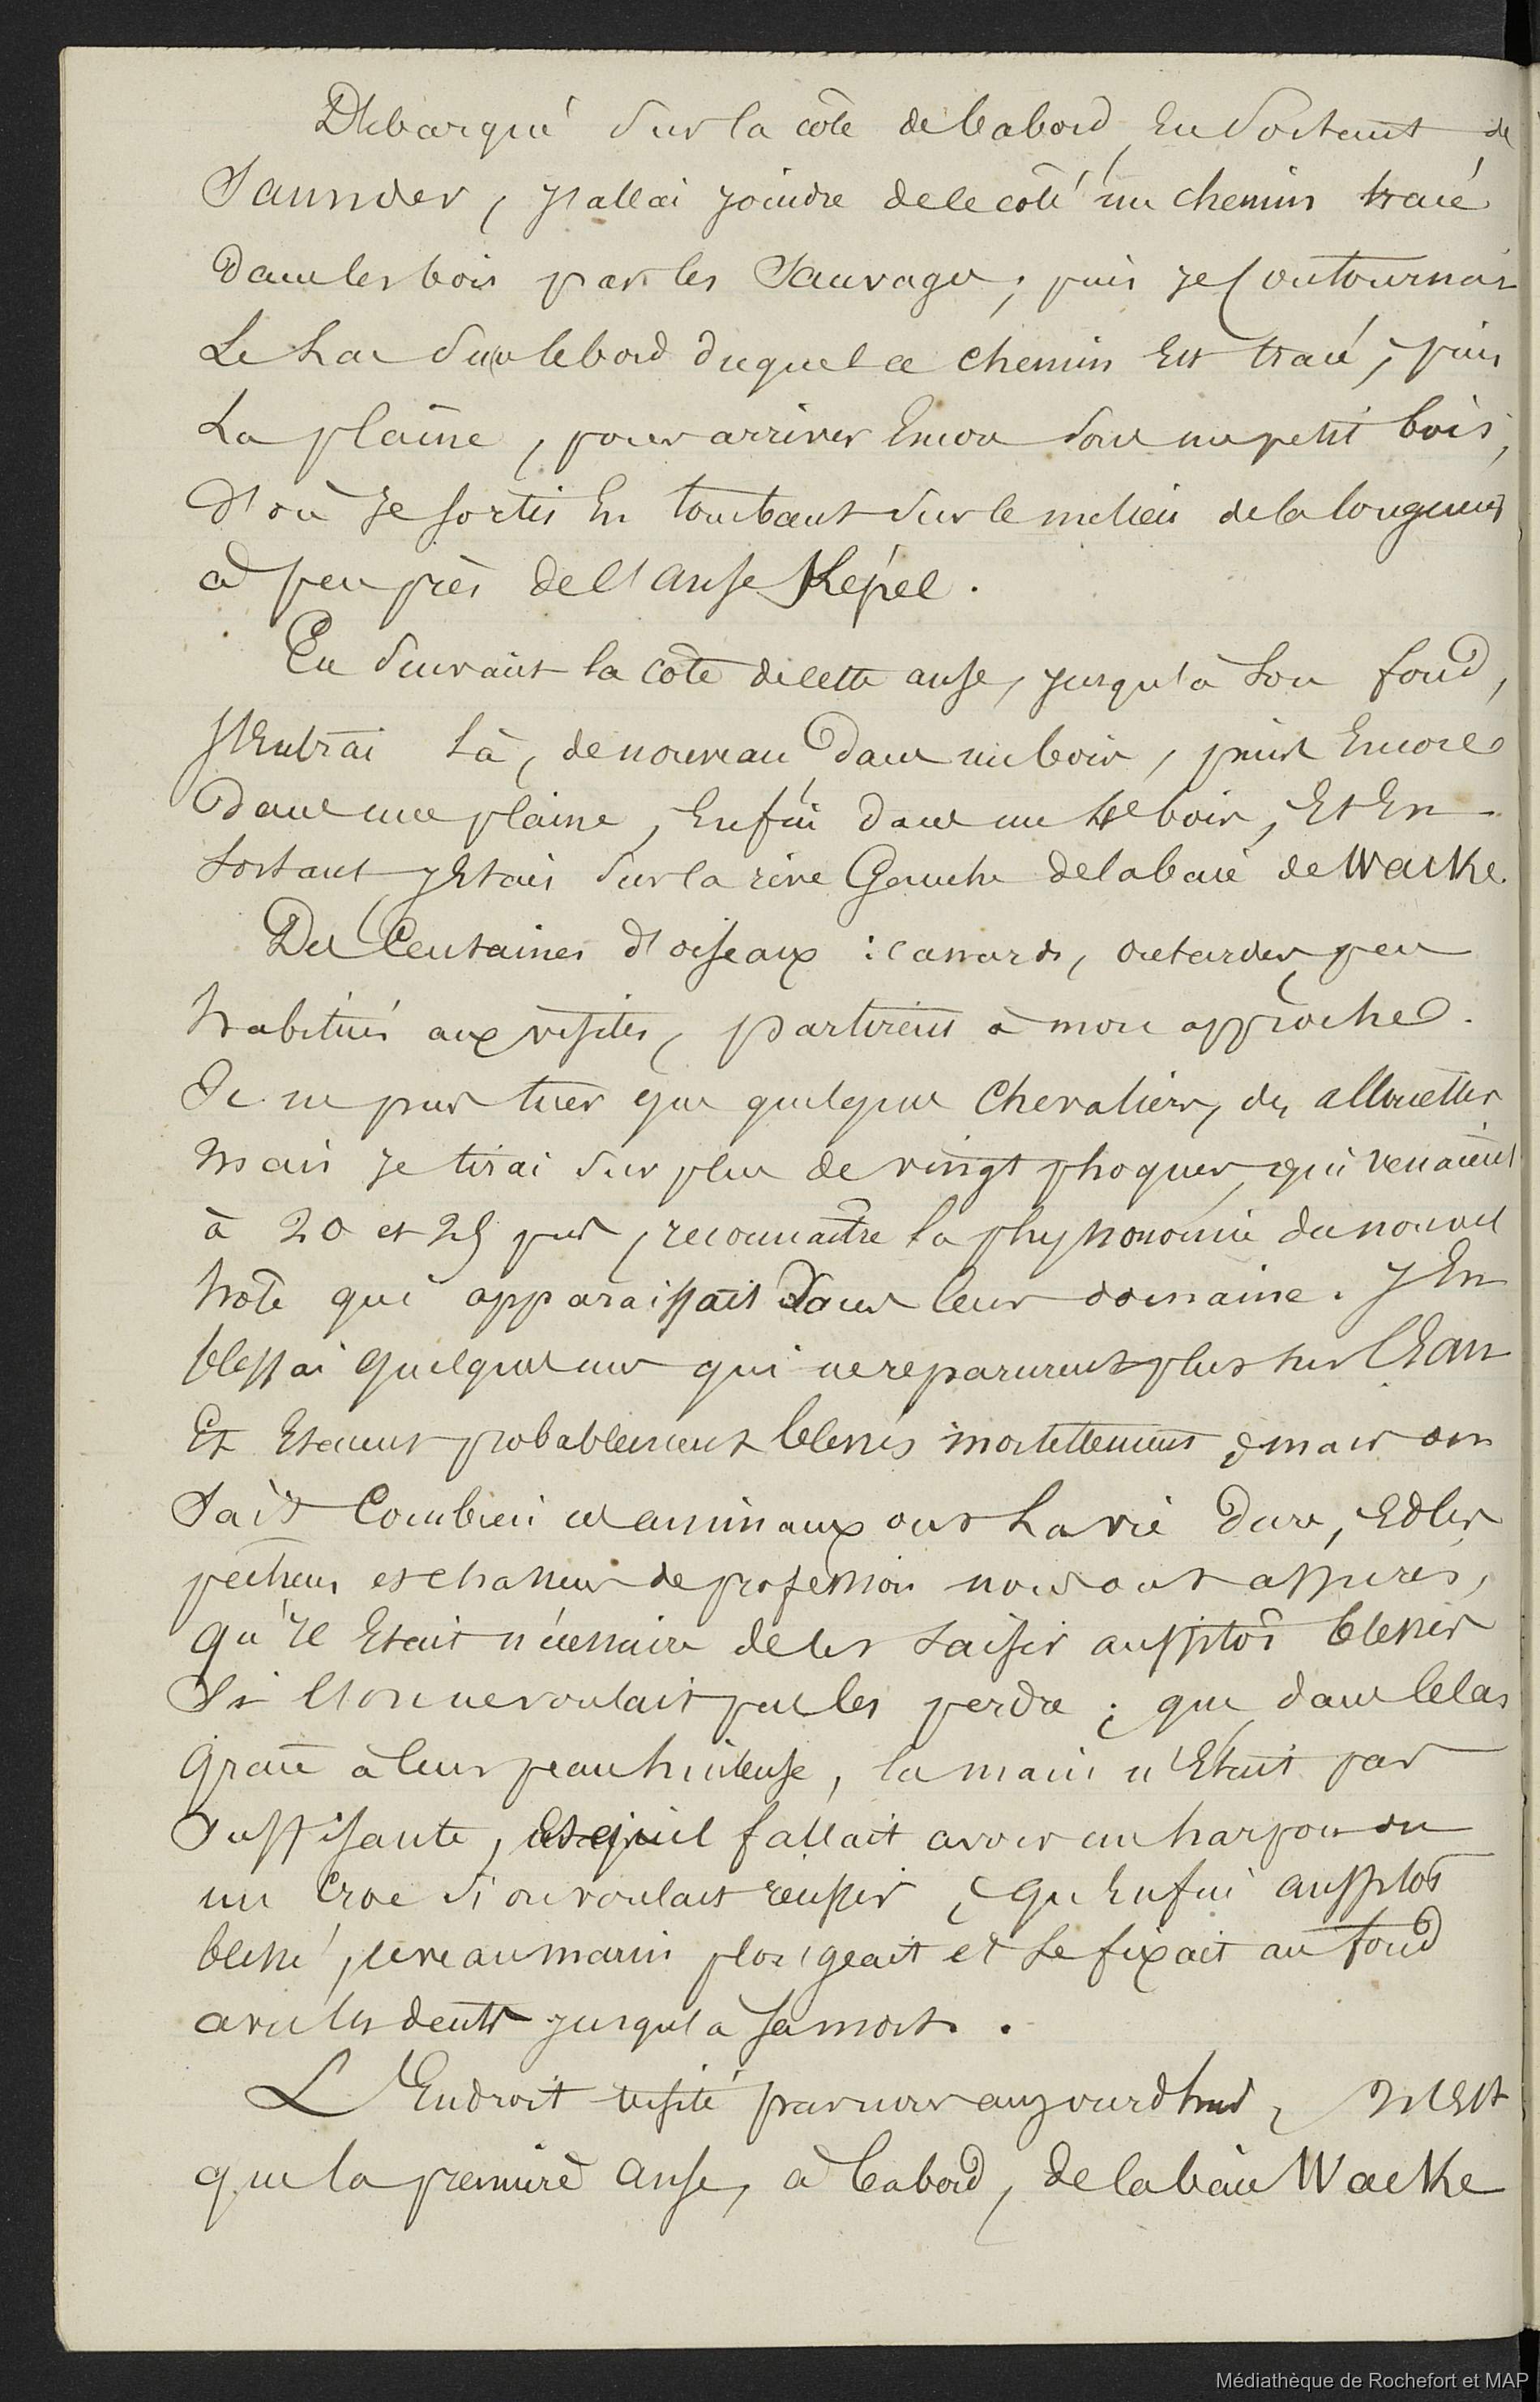 Débarqué sur la côte de babord, en sortant de
Saunder, j'allai joindre de ce côté un chemin tracé
dans les bois par les Sauvages ; puis je contournai
le lac sur le bord duquel ce chemin est tracé, puis
la plaine, pour arriver encore dans un petit bois,
d'où je sortis en tombant sur le milieu de la longueur
à peu près de l'anse Képel.
En suivant la côte de cette anse, jusqu'à son fond,
J'entrai là, de nouveau dans un bois, puis encore
dans une plaine, enfin dans un 4e bois, et en
sortant, j'étais sur la rive Gauche de la baie de Wacke.
Des Centaines d'oiseaux : canards, outardes, peu
habitués aux visites, partirent à mon approche.
Je ne pus tuer que quelques chevaliers, des allouettes
mais je tirai sur plus de vingt phoques, qui venaient
à 20 et 25 pas, reconnaître la physionomie du nouvel
hôte qui apparaissait dans leur domaine. J'en
blessai quelques uns qui ne reparurent plus sur l'eau
et étaient probablement blessés mortellement ; mais on
sait combien ces animaux ont la vie dure, et les
pêcheurs et chasseurs de profession nous ont assurés,
qu'il était nécessaire de les saisir aussitôt blessés
si l'on ne voulait pas les perdre ; que dans ce cas
grâce à leur peau huileuse, la main n'était pas
suffisante, et qu'il fallait avoir un harpon ou
un croc si on voulait réussir ; qu'enfin aussitôt
blessé, le veau marin plongeait et se fixait au fond
avec les dents jusqu'à sa mort.
L'Endroit visité par nous aujourd'hui, n'est
que la première anse, à babord, de la baie Wacke
Médiathèque de Rochefort et MAP